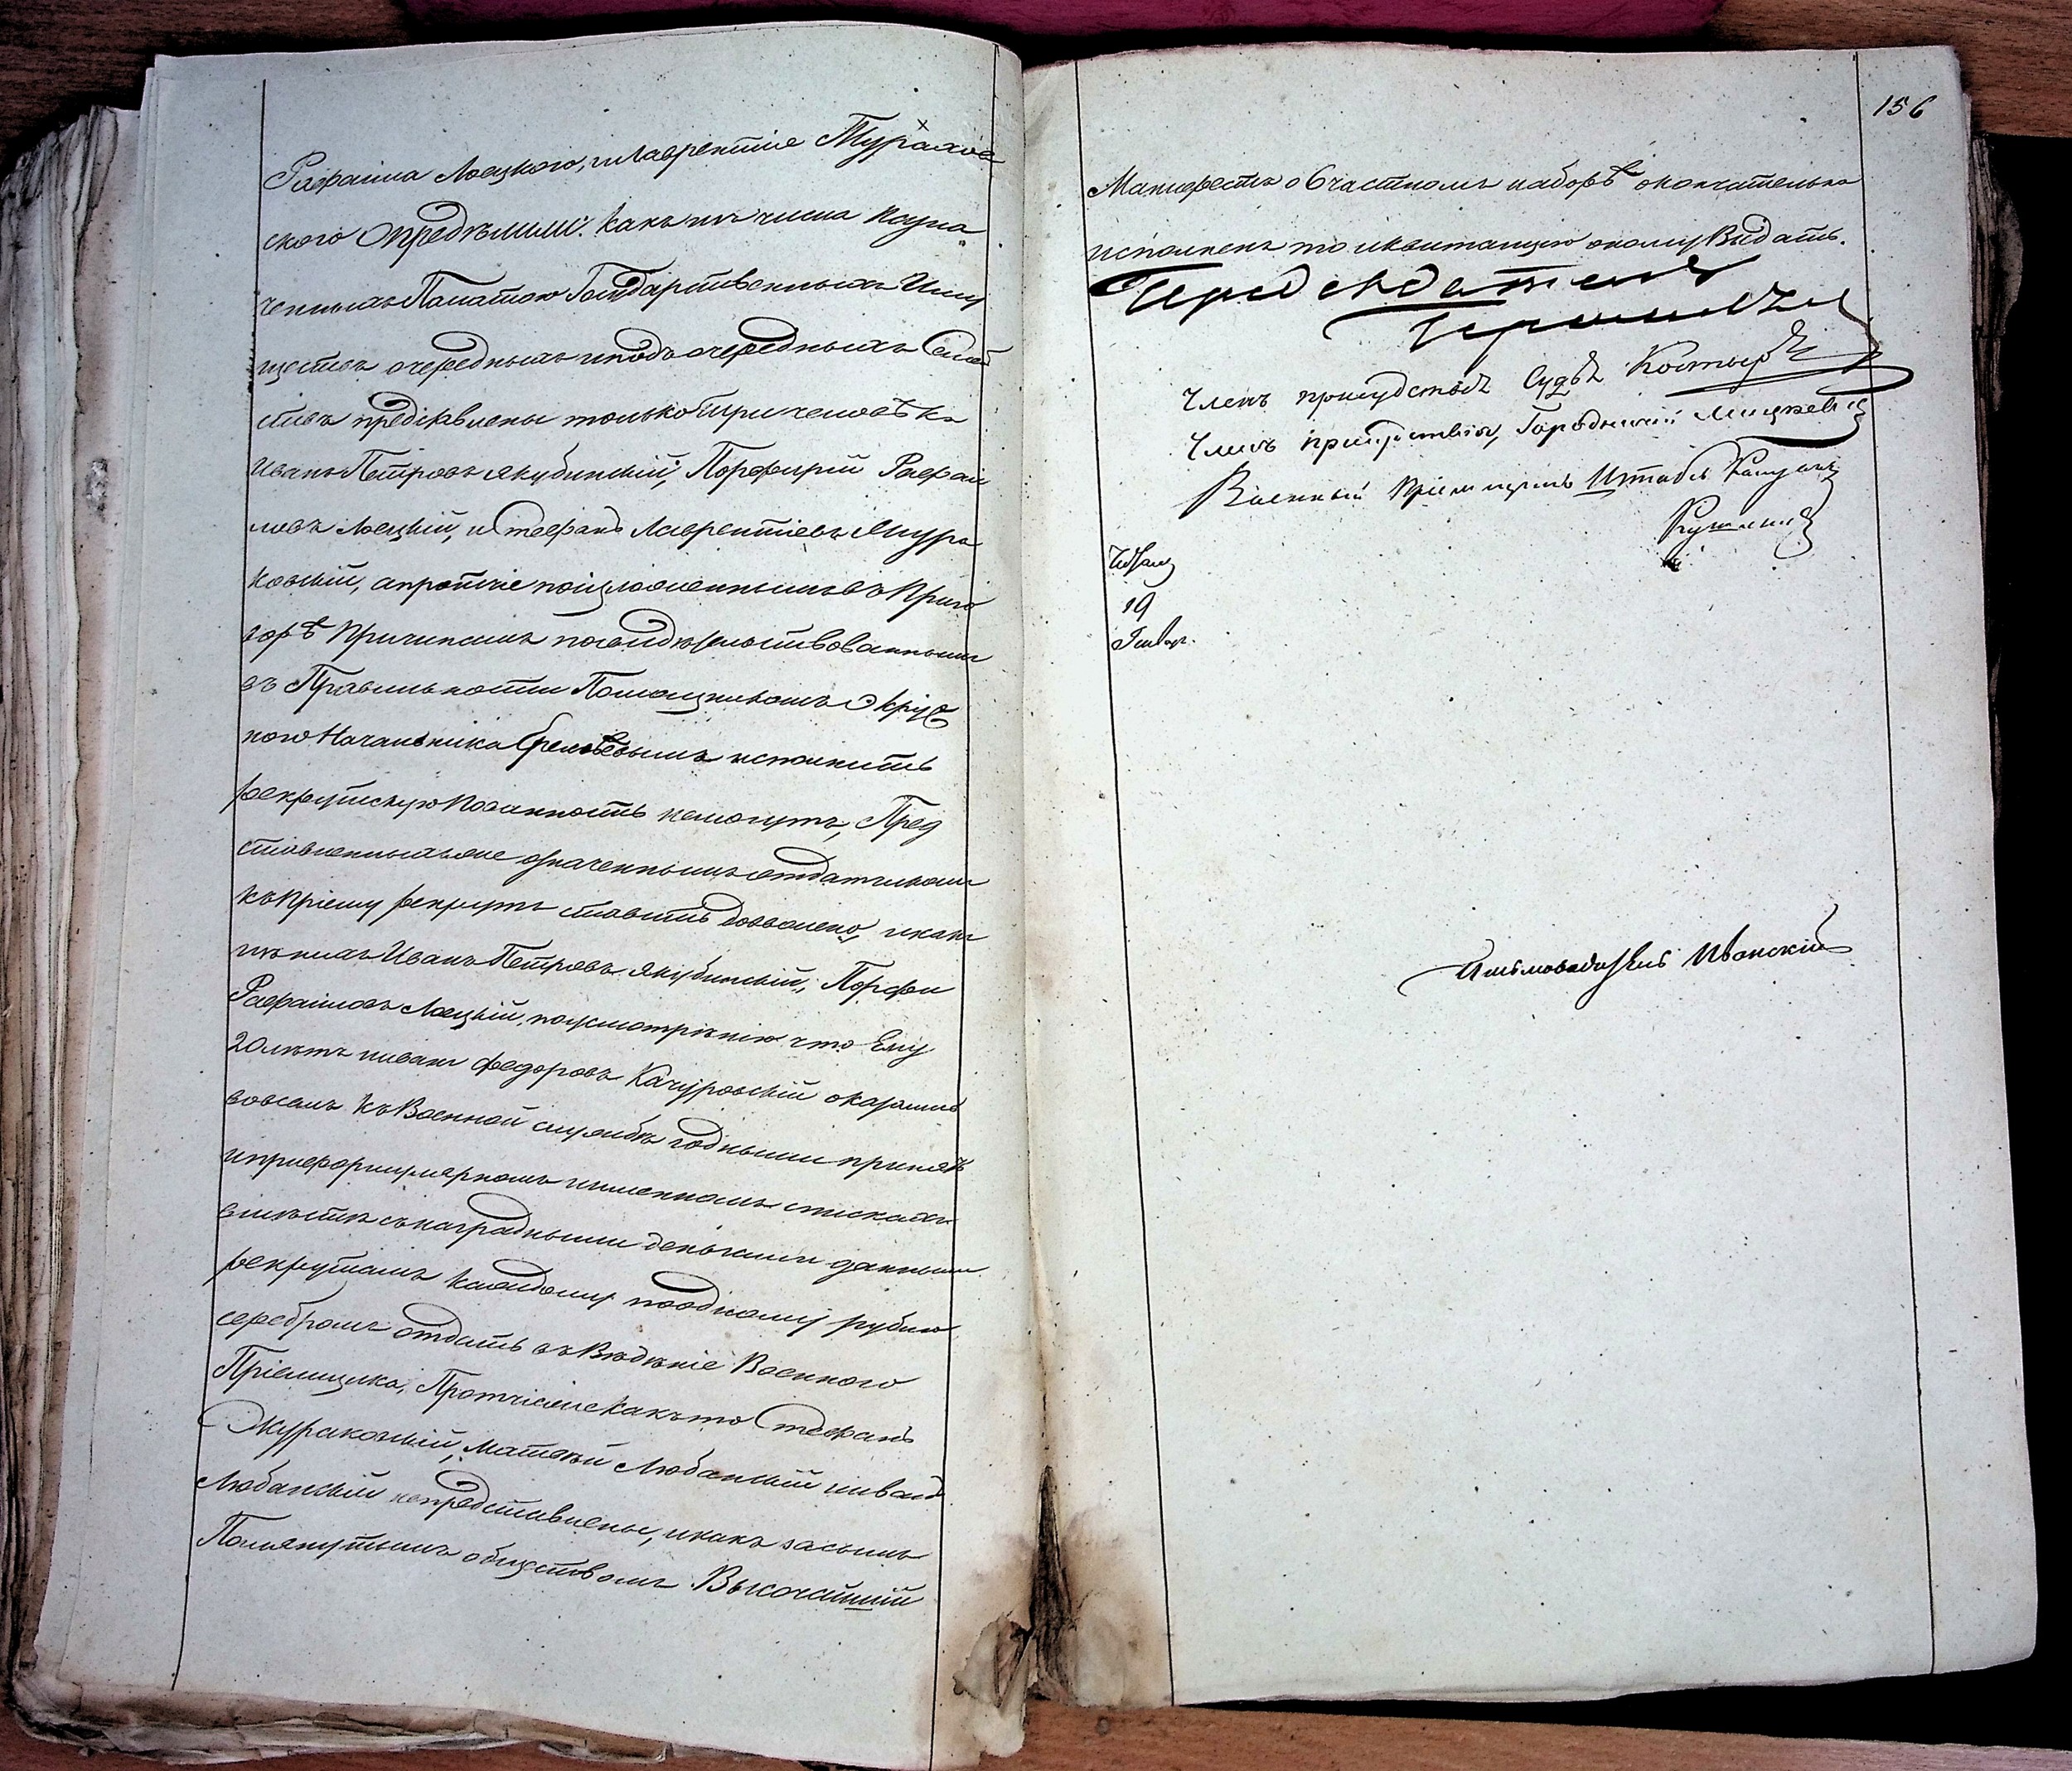 Рафаила Лоецкого, и Лаврентiе Мураков
ского Определили: какъ изъ числа назна
ченныхъ Палатою Государственныхъ Иму
ществъ очередныхъ и подъ очередныхъ Семей
ствъ представлены только три человѣка
Иванъ Петровъ Якубинскiй, Порфирiй Рафаи
ловъ Лоецкiй, и Стефанъ Лаврентiевъ Мура
ковскiй, а протчiе по изложеннымъ въ Приго
ворѣ Причинамъ позасвидѣтельствованнымъ
въ Правильности Помощникомъ Окруж
ного Начальника исполнить
рекрутскую Повинность немогутъ, Пред
ставленныхъ же означеннымъ отдатчикомъ
къ Прiему рекрутъ ставить дозволено, и какъ
изъ нихъ Иванъ Петровъ Якубинскiй, Порфи
Рафаиловъ Лоецкiй, по усмотренiю что Ему
20 лѣтъ и иванъ Федоровъ Качуровскiй оказались
вовсемъ къ Военной службѣ годными принять
и при формулярномъ именномъ спискахъ
вмѣстѣ съ наградными деньгами данными
рекрутамъ каждому по одному рублю
серебромъ отдать въ Вѣдѣнiе Военного
Прiемщика, Протчiе же какъ то Стефанъ
Мураковскiй, Матвѣй Любанскiй и иванъ
Любанскiй непредставлены, и какъ за симъ
Помянутымъ обществомъ Высочайшiй
156
Манифестъ о 6 частномъ наборѣ окончательно
исполненъ то и квитанцiю оному Выдать.
Председатель
Членъ присудствiя Судья
Членъ присудствiя, Городничiй Мицкевичъ
Военный Прiемщикъ Штабсъ Капитанъ
19
Январ.
Письмоводитель Ивонскiй